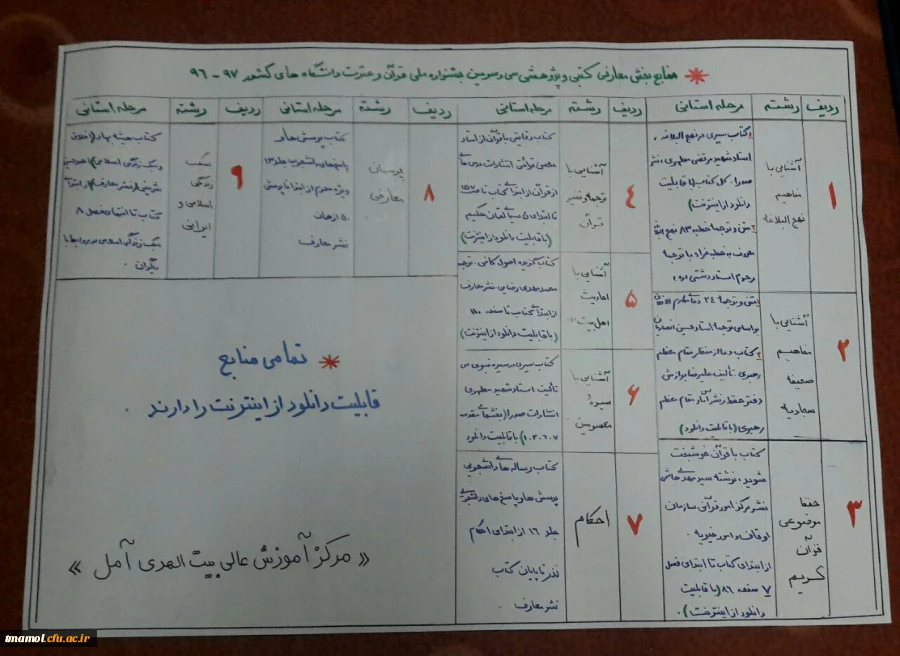 منابع بخش معارفی کتبی و پژوهشی سی و سومین جشنواره ملی قرآن و عترت دانشگاه های کشور ۹۷ - ۹۶
ردیف رشته مرحله استانی
۱
آشنایی با
مفاهیم
نهج البلاغه
۱ کتاب سیری در نهج البلاغه،
استاد شهید مرتضی مطهری، نشر
صدرا، کل کتاب (با قابلیت
دانلود از اینترنت)
۲ متن و ترجمه خطبه ۸۳ نهج البلاغه
معروف به خطبه غراء با ترجمه
مرحوم استاد دشتی (ره)
۲
آشنایی با
مفاهیم
صحیفه
سجادیه
متن و ترجمه ۲۴ دعای مکارم الاخلاق
بر اساس ترجمه استاد حسین انصاریان
۲ کتاب دعا از منظر مقام معظم
رهبری، تألیف علیرضا برازش
دفتر حفظ و نشر آثار مقام معظم
رهبری (با قابلیت دانلود)
۳
حفظ
موضوعی
قرآن
کریم
کتاب با قرآن خوشبخت
شوید، نوشته سید مهدی هاشمی
نشر مرکز امور قرآنی سازمان
اوقاف و امور خیریه.
از ابتدای کتاب تا ابتدای فصل
۷ صفحه ۸۶ (با قابلیت
دانلود از اینترنت).
ردیف رشته مرحله استانی
۴
آشنایی با
ترجمه و تفسیر
قرآن
کتاب دقایقی با قرآن از استاد
محسن قرائتی انتشارات درس هایی
از قرآن از ابتدای کتاب تا صفحه ۱۵۷
تا ابتدای
(با قابلیت دانلود از اینترنت)
۵
آشنایی با
احادیث
اهل بیت
کتاب گزیده اصول کافی، ترجمه
محمد مهدی رضایی، نشر معارف
از ابتدای کتاب تا صفحه ۱۱۰
(با قابلیت دانلود از اینترنت)
۶
آشنایی با
سیره
معصومین
کتاب سیری در سیره نبوی ص
تألیف استاد شهید مطهری
انتشارات صدرا (بخشهای مقدمه
۱،۳،۶،۷) با قابلیت دانلود
۷
احکام
کتاب رساله های دانشجویی
پرسش ها و پاسخ های دانشجویی
جلد ۱۶ از ابتدای احکام
نذر تا پایان کتاب
نشر معارف.
ردیف رشته مرحله استانی
۸
پرسمان
معارفی
کتاب پرسش ها و
پاسخهای دانشجویی جلد ۱۳
ویژه محرم از ابتدا تا پرسش
۵۰ از همان
نشر معارف
ردیف رشته مرحله استانی
۹
سبک
زندگی
اسلامی و
ایرانی
کتاب همیشه بهار (اخلاق
و سبک زندگی اسلامی) احمدحسین
شریفی از نشر معارف از ابتدای
کتاب تا انتهای فصل ۸
سبک زندگی اسلامی در روابط با
دیگران.
تمامی منابع
قابلیت دانلود از اینترنت را دارند.
« مرکز آموزش عالی بیت الهدی آمل »
tmamol.cfu.ac.ir